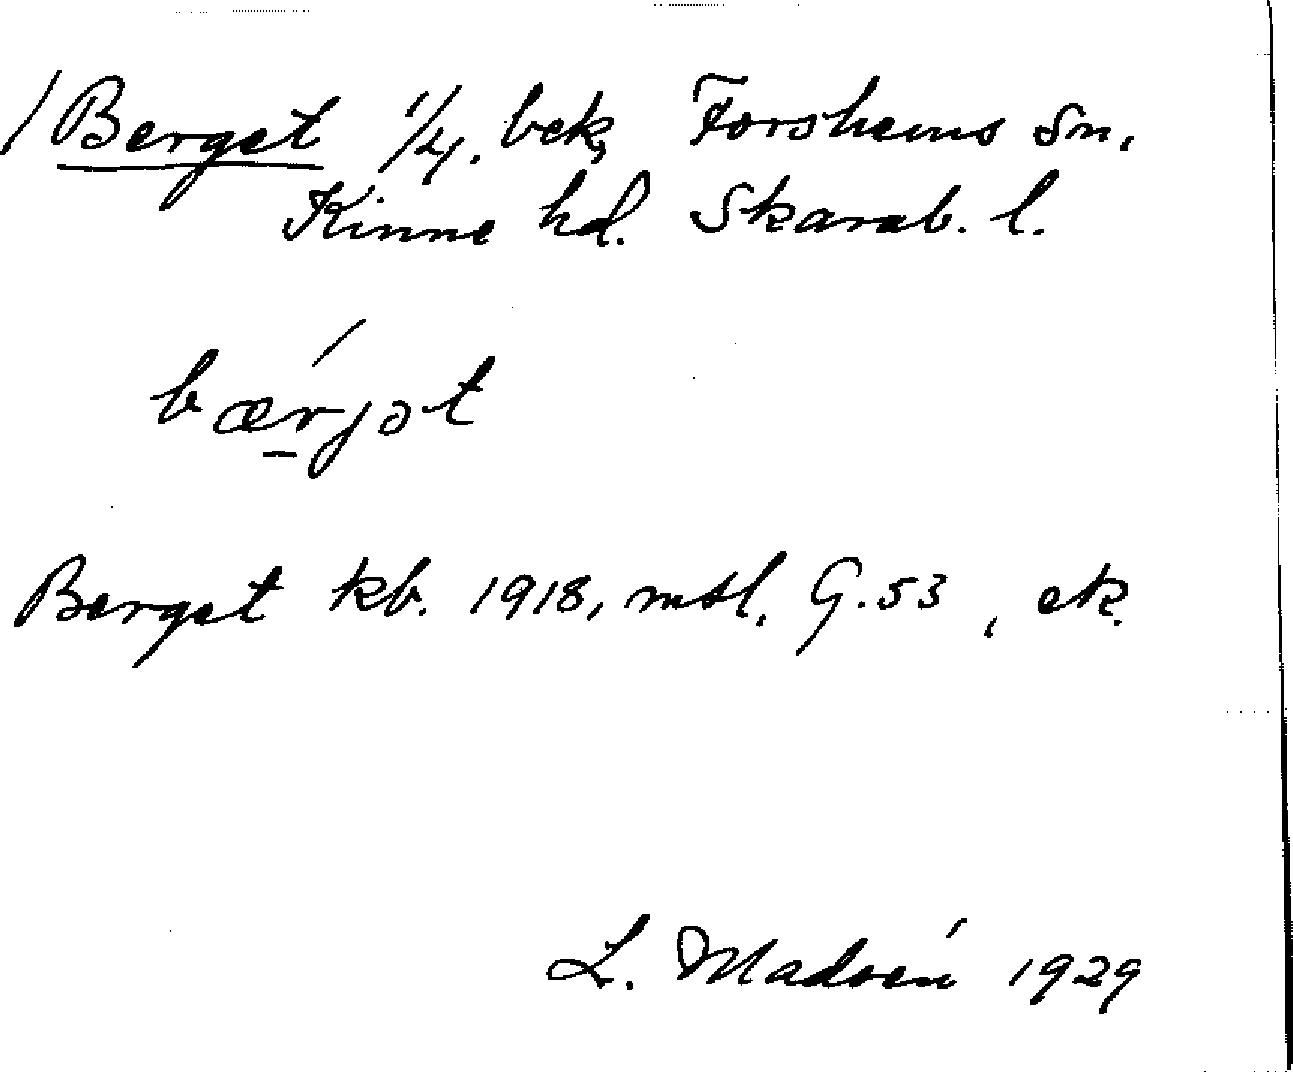 /Berget 1/4. bek, Forshems Sn.
Kinne hd. Skarab. l.
bærjət
Berget kb. 1918, mtl. G.53, ek.
L. Madsén 1929